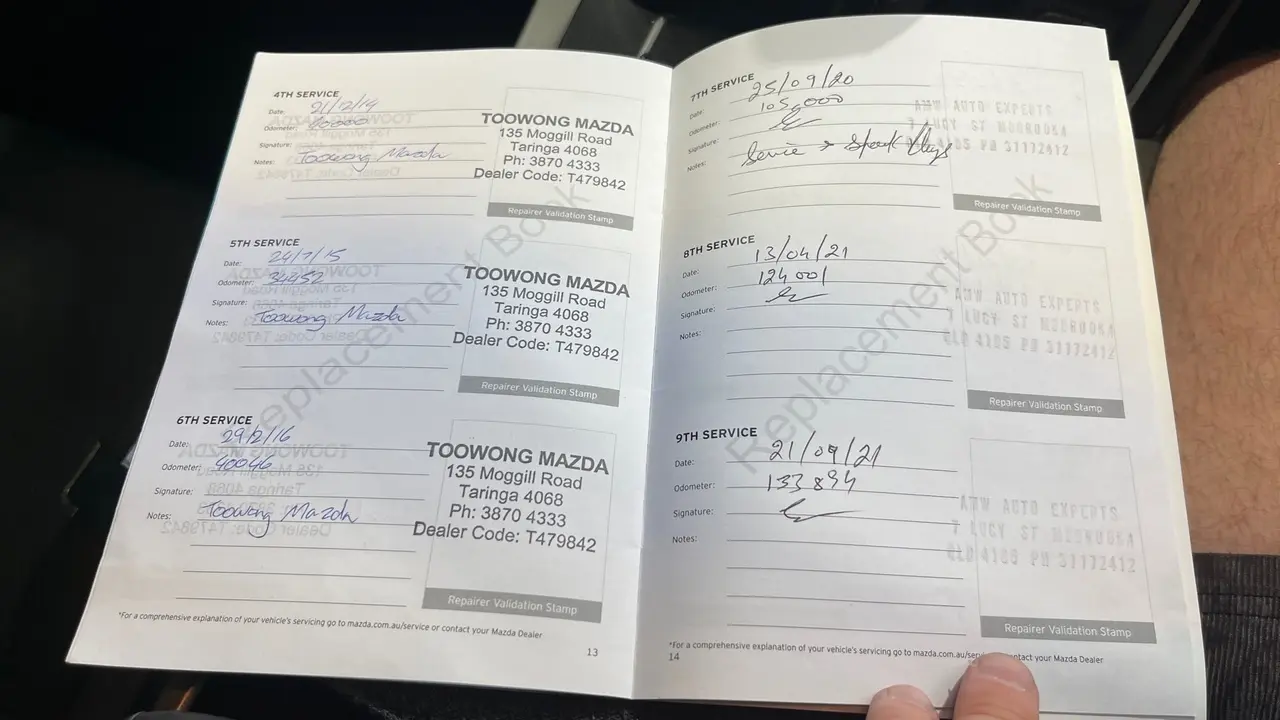 4TH SERVICE
Date: 21/12/14
Odometer:
Signature:
Notes: Toowong Mazda
TOOWONG MAZDA
135 Moggill Road
Taringa 4068
Ph: 3870 4333
Dealer Code: T479842
Repairer Validation Stamp
5TH SERVICE
Date: 24/7/15
Odometer: 34452
Signature:
Notes: Toowong Mazda
TOOWONG MAZDA
135 Moggill Road
Taringa 4068
Ph: 3870 4333
Dealer Code: T479842
Repairer Validation Stamp
6TH SERVICE
Date: 29/2/16
Odometer: 40046
Signature:
Notes: Toowong Mazda
TOOWONG MAZDA
135 Moggill Road
Taringa 4068
Ph: 3870 4333
Dealer Code: T479842
Repairer Validation Stamp
Replacement Book
*For a comprehensive explanation of your vehicle's servicing go to mazda.com.au/service or contact your Mazda Dealer
13
7TH SERVICE
Date: 25/09/20
Odometer: 105,000
Signature:
Notes: Service > Spark Plugs
AMW AUTO EXPERTS
7 LUCY ST MOOROOKA
QLD 4105 PH 31172412
Repairer Validation Stamp
8TH SERVICE
Date: 13/04/21
Odometer: 124001
Signature:
Notes:
AMW AUTO EXPERTS
7 LUCY ST MOOROOKA
QLD 4105 PH 31172412
Repairer Validation Stamp
9TH SERVICE
Date: 21/09/21
Odometer: 133894
Signature:
Notes:
AMW AUTO EXPERTS
7 LUCY ST MOOROOKA
QLD 4105 PH 31172412
Repairer Validation Stamp
Replacement Book
*For a comprehensive explanation of your vehicle's servicing go to contact your Mazda Dealer
14